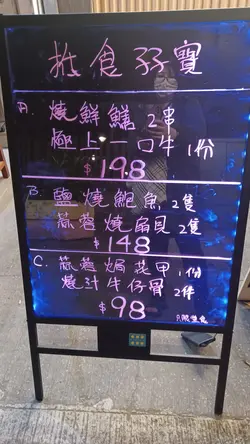 推食孖寶
A. 燒鮮鱔 2串
極上一口牛 1份
$198
B. 鹽燒鮑魚 2隻
蒜蓉燒扇貝 2隻
$148
C. 蒜蓉焗花甲 1份
燒汁牛仔骨 2件
$98
只限堂食